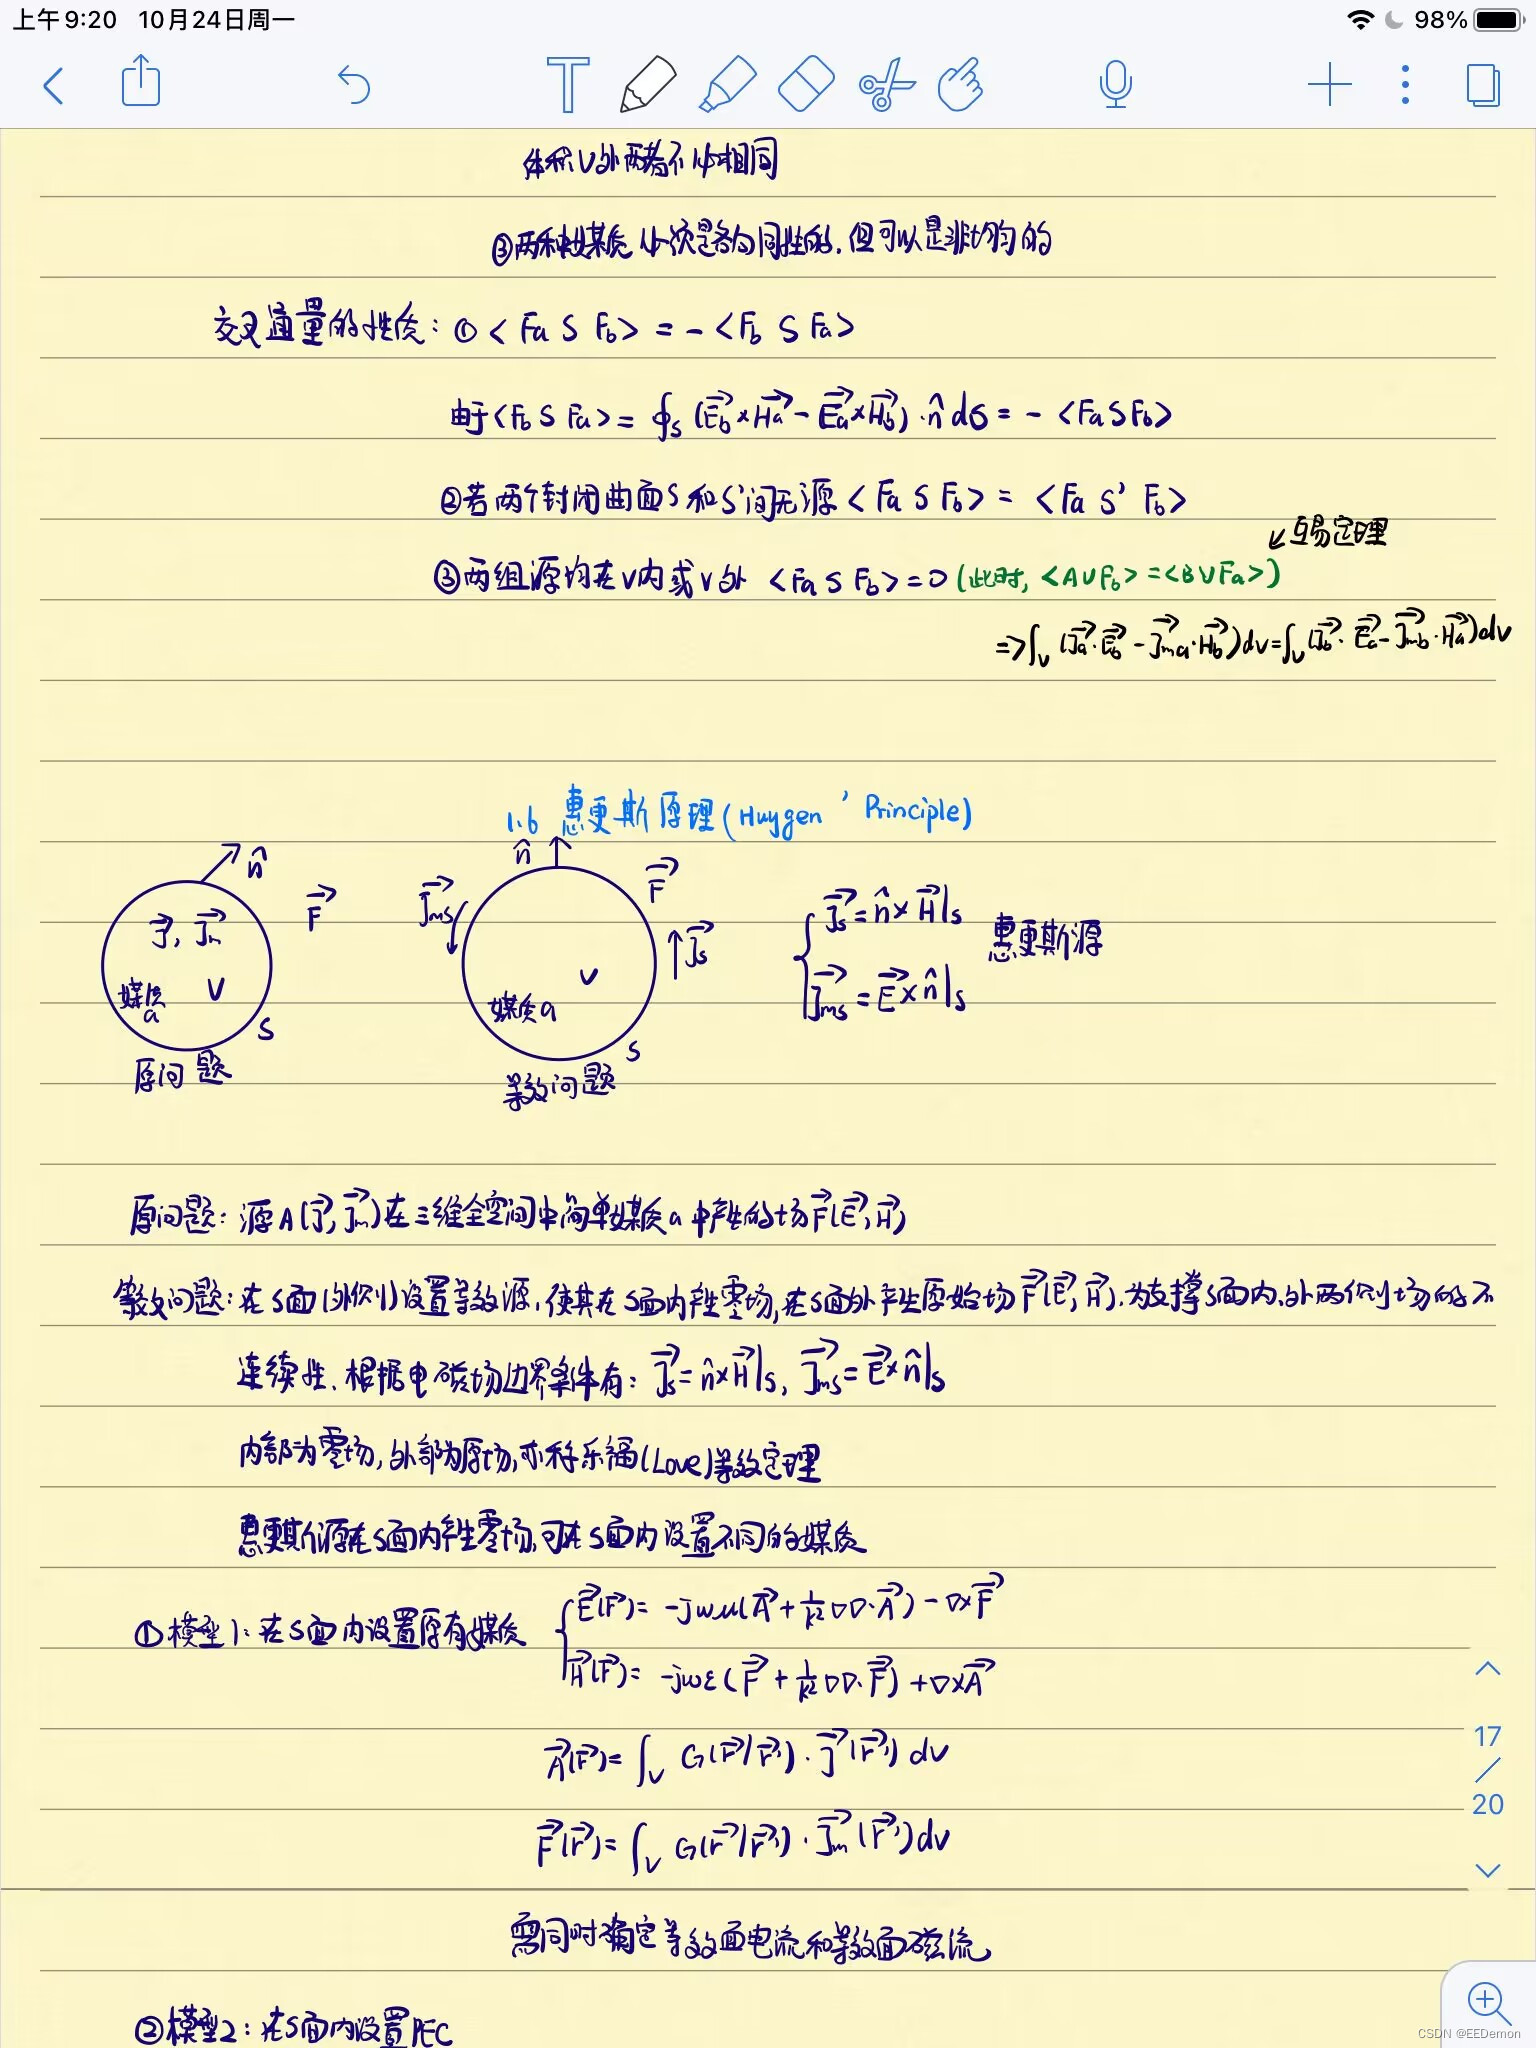 上午9:20 10月24日周一 98%
体积V外两者不必相同
③两种媒质必须是各向同性的,但可以是非均匀的
交叉通量的性质:① <Fa S Fb> = - <Fb S Fa>
由于<Fb S Fa> = ∮s (E⃗b×H⃗a - E⃗a×H⃗b)·n̂ dσ = - <Fa S Fb>
②若两个封闭曲面S和S'间无源 <Fa S Fb> = <Fa S' Fb>
↙互易定理
③两组源均在V内或V外 <Fa S Fb> = 0 (此时, <A V Fb> = <B V Fa>)
=> ∫v (J⃗a·E⃗b - J⃗ma·H⃗b)dv = ∫v (J⃗b·E⃗a - J⃗mb·H⃗a)dv
1.6 惠更斯原理(Huygen ' Principle)
n̂ F⃗
J⃗, J⃗m
媒质a V
S
原问题
n̂ F⃗
J⃗ms J⃗s
V
媒质a
S
等效问题
J⃗s = n̂×H⃗|s
惠更斯源
J⃗ms = E⃗×n̂|s
原问题:源A(J⃗, J⃗m)在三维全空间中简单媒质a中产生的场F⃗(E⃗, H⃗)
等效问题:在S面(外侧)设置等效源,使其在S面内产生零场,在S面外产生原始场F⃗(E⃗, H⃗).为支撑S面内、外两侧场的不
连续性,根据电磁场边界条件有:J⃗s = n̂×H⃗|s, J⃗ms = E⃗×n̂|s
内部为零场,外部为原场,亦称乐福(Love)等效定理
惠更斯源在S面内产生零场,可在S面内设置不同的媒质
①模型1:在S面内设置原有媒质 { E⃗(r⃗) = -jωμ(A⃗ + 1/k² ∇∇·A⃗) - ∇×F⃗
H⃗(r⃗) = -jωε(F⃗ + 1/k² ∇∇·F⃗) + ∇×A⃗
A⃗(r⃗) = ∫v G(r⃗/r⃗')·J⃗(r⃗') dv
F⃗(r⃗) = ∫v G(r⃗/r⃗')·J⃗m(r⃗')dv
需同时确定等效面电流和等效面磁流
②模型2:在S面内设置PEC
17
/
20
CSDN @EEDemon